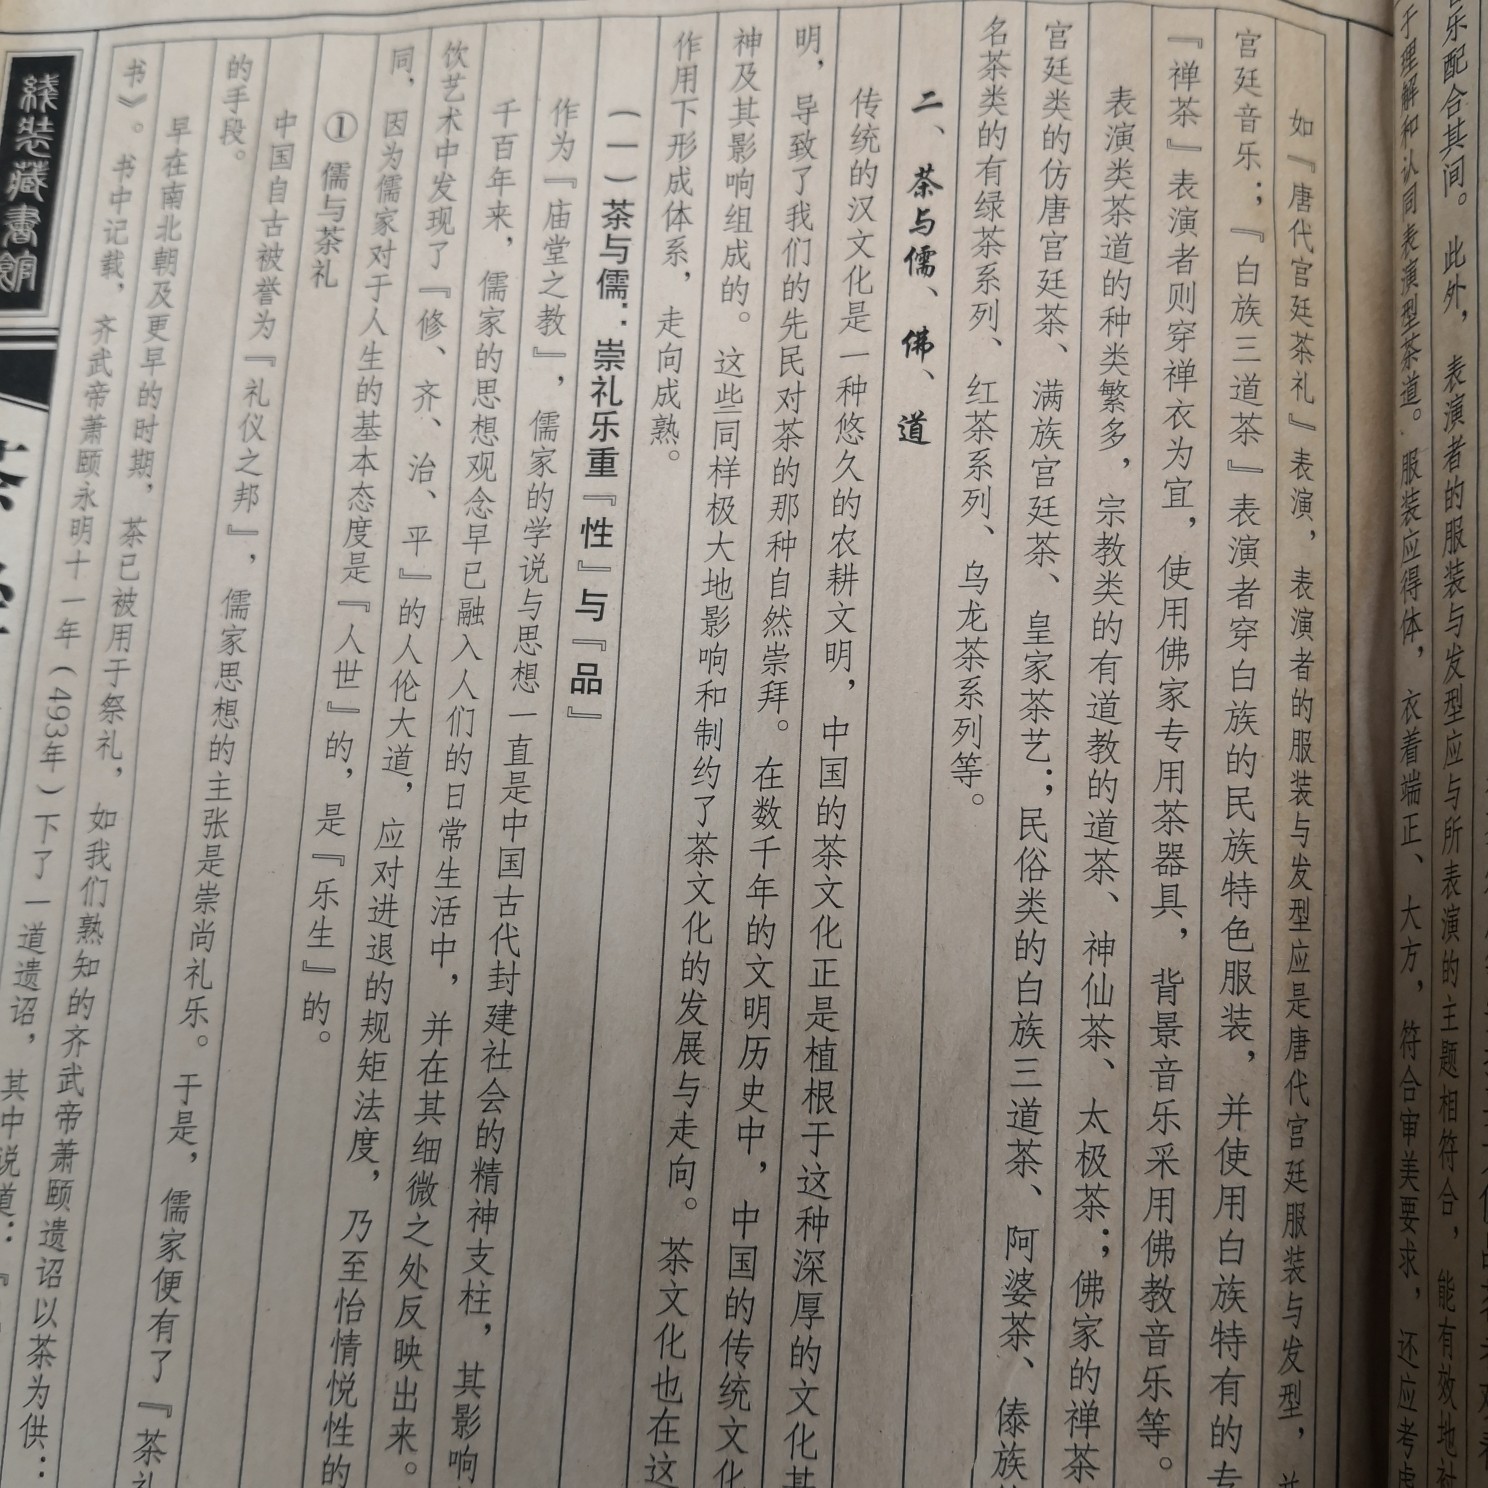 音乐配合其间。此外，表演者的服装与发型应与所表演的主题相符合，能有效地
于理解和认同表演型茶道。服装应得体，衣着端正、大方，符合审美要求，还应考虑
如『唐代宫廷茶礼』表演，表演者的服装与发型应是唐代宫廷服装与发型，
宫廷音乐；『白族三道茶』表演者穿白族的民族特色服装，并使用白族特有的专
『禅茶』表演者则穿禅衣为宜，使用佛家专用茶器具，背景音乐采用佛教音乐等。
表演类茶道的种类繁多，宗教类的有道教的道茶、神仙茶、太极茶；佛家的禅茶
宫廷类的仿唐宫廷茶、满族宫廷茶、皇家茶艺；民俗类的白族三道茶、阿婆茶、傣族
名茶类的有绿茶系列、红茶系列、乌龙茶系列等。
二、茶与儒、佛、道
传统的汉文化是一种悠久的农耕文明，中国的茶文化正是植根于这种深厚的文化
明，导致了我们的先民对茶的那种自然崇拜。在数千年的文明历史中，中国的传统文化
神及其影响组成的。这些同样极大地影响和制约了茶文化的发展与走向。茶文化也在这
作用下形成体系，走向成熟。
(一)茶与儒：崇礼乐重『性』与『品』
作为『庙堂之教』，儒家的学说与思想一直是中国古代封建社会的精神支柱，其影响
千百年来，儒家的思想观念早已融入人们的日常生活中，并在其细微之处反映出来。
饮艺术中发现了『修、齐、治、平』的人伦大道，应对进退的规矩法度，乃至怡情悦性的
同，因为儒家对于人生的基本态度是『人世』的，是『乐生』的。
①儒与茶礼
中国自古被誉为『礼仪之邦』，儒家思想的主张是崇尚礼乐。于是，儒家便有了『茶礼
的手段。
早在南北朝及更早的时期，茶已被用于祭礼，如我们熟知的齐武帝萧颐遗诏以茶为供：
书》。书中记载，齐武帝萧颐永明十一年(493年)下了一道遗诏，其中说道：『
线装藏书馆